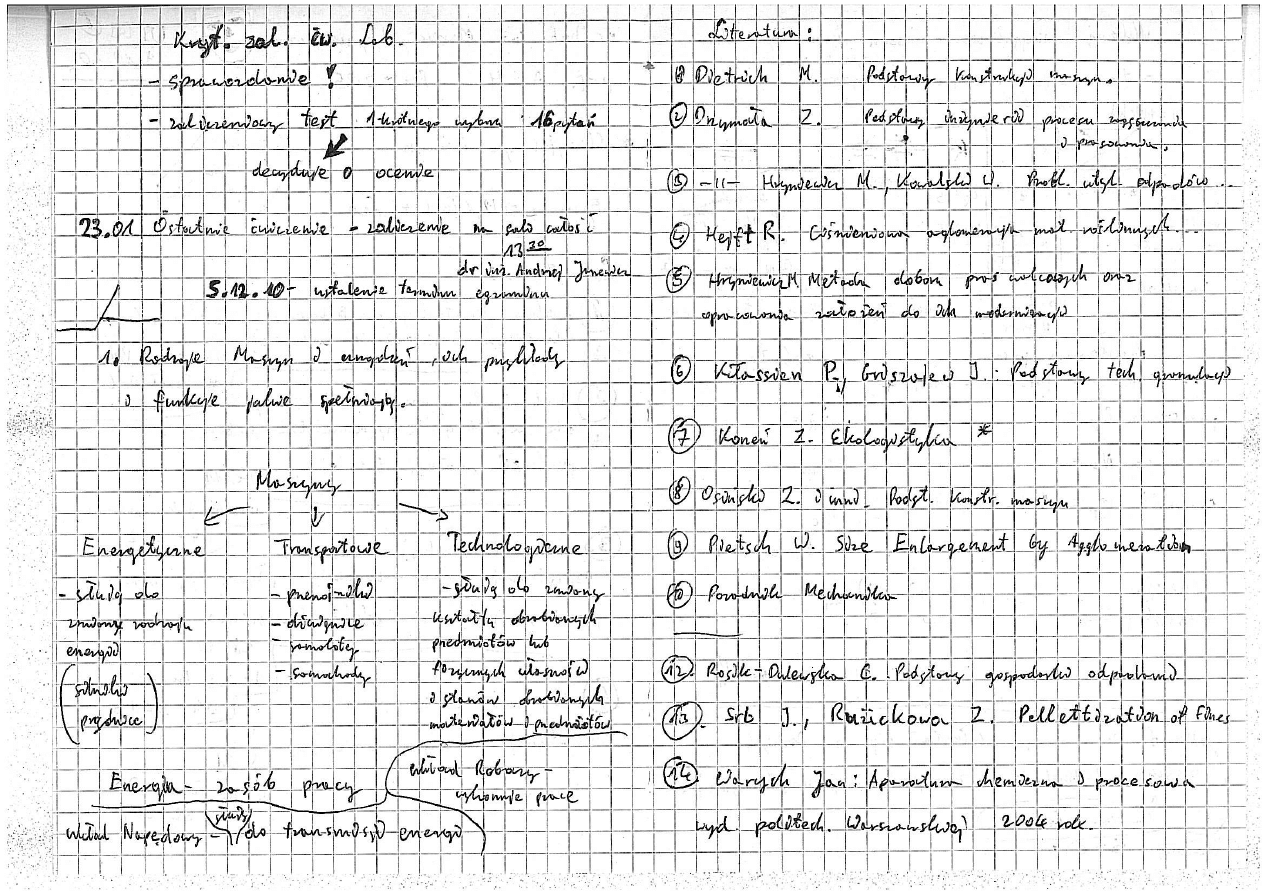 Kryt. zal. ćw. Lab.
- sprawozdanie !
- zaliczeniowy test 1-krotnego wyboru 16 pytań
decyduje o ocenie
23.01 Ostatnie ćwiczenie - zaliczenie na sali całość
13 30
dr inż. Andrzej
5.12.10 - ustalenie terminu egzaminu
1. Rodzaje Maszyn i urządzeń, ich przykłady
i funkcje jakie spełniają.
Maszyny
Energetyczne
- służą do
zmiany rodzaju
energii
(silniki
prądnice)
Transportowe
- przenośniki
- dźwignice
- samoloty
- samochody
Technologiczne
- służą do zmiany
kształtu obrabianych
przedmiotów lub
fizycznych własności
i stanów obrabianych
materiałów i przedmiotów
Energia - zasób pracy
układ Roboczy -
wykonuje pracę
układ Napędowy - służy do transmisji energii
Literatura:
1 Dietrich M. Podstawy Konstrukcji maszyn.
2 Drzymała Z. Podstawy inżynierii procesu zagęszczania
i prasowania.
3 -11- Hryniewicz M., Kowalski W. Probl. utyl. odpadów...
4 Hejft R. Ciśnieniowa aglomeracja mat. roślinnych...
5 Hryniewicz M Metoda doboru pras walcowych oraz
opracowania założeń do ich modernizacji
6 Kłassien P., Griszajew I.: Podstawy tech. granulacji
7 Koreń Z. Ekologistyka *
8 Osiński Z. i inni. Podst. Konstr. maszyn
9 Pietsch W. Size Enlargement by Agglomeration
10 Poradnik Mechanika
12. Rosik-Dulewska C. Podstawy gospodarki odpadami
13. Srb J., Ružickowa Z. Pelletization of Fines
14 Warych Jan: Aparatura chemiczna i procesowa
wyd. politech. Warszawskiej 2004 rok.